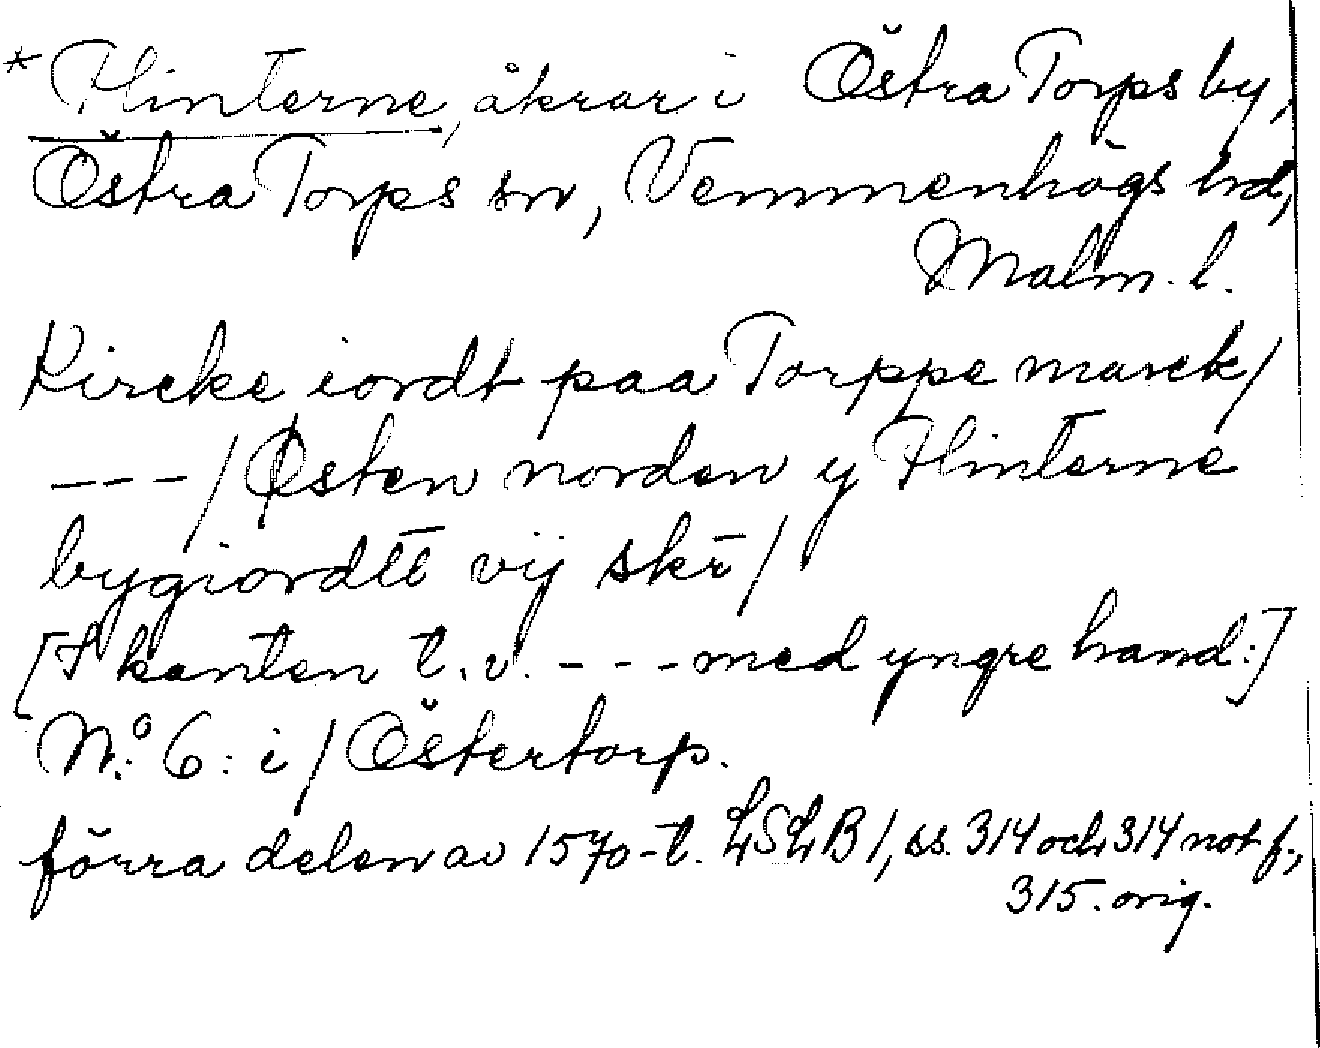 * Hinterne, åkrar i Östra Torps by,
Östra Torps sn, Vemmenhögs hd,
Malm. l.
Kircke iordt paa Torppe marck/
---/Østen norden y Hinterne
bygiordtt vij skr̄/
[I kanten t.v. --- med yngre hand:]
N:o 6: i/Östertorp.
förra delen av 1570-t. LSLB 1, ss. 314 och 314 not f.,
315. orig.